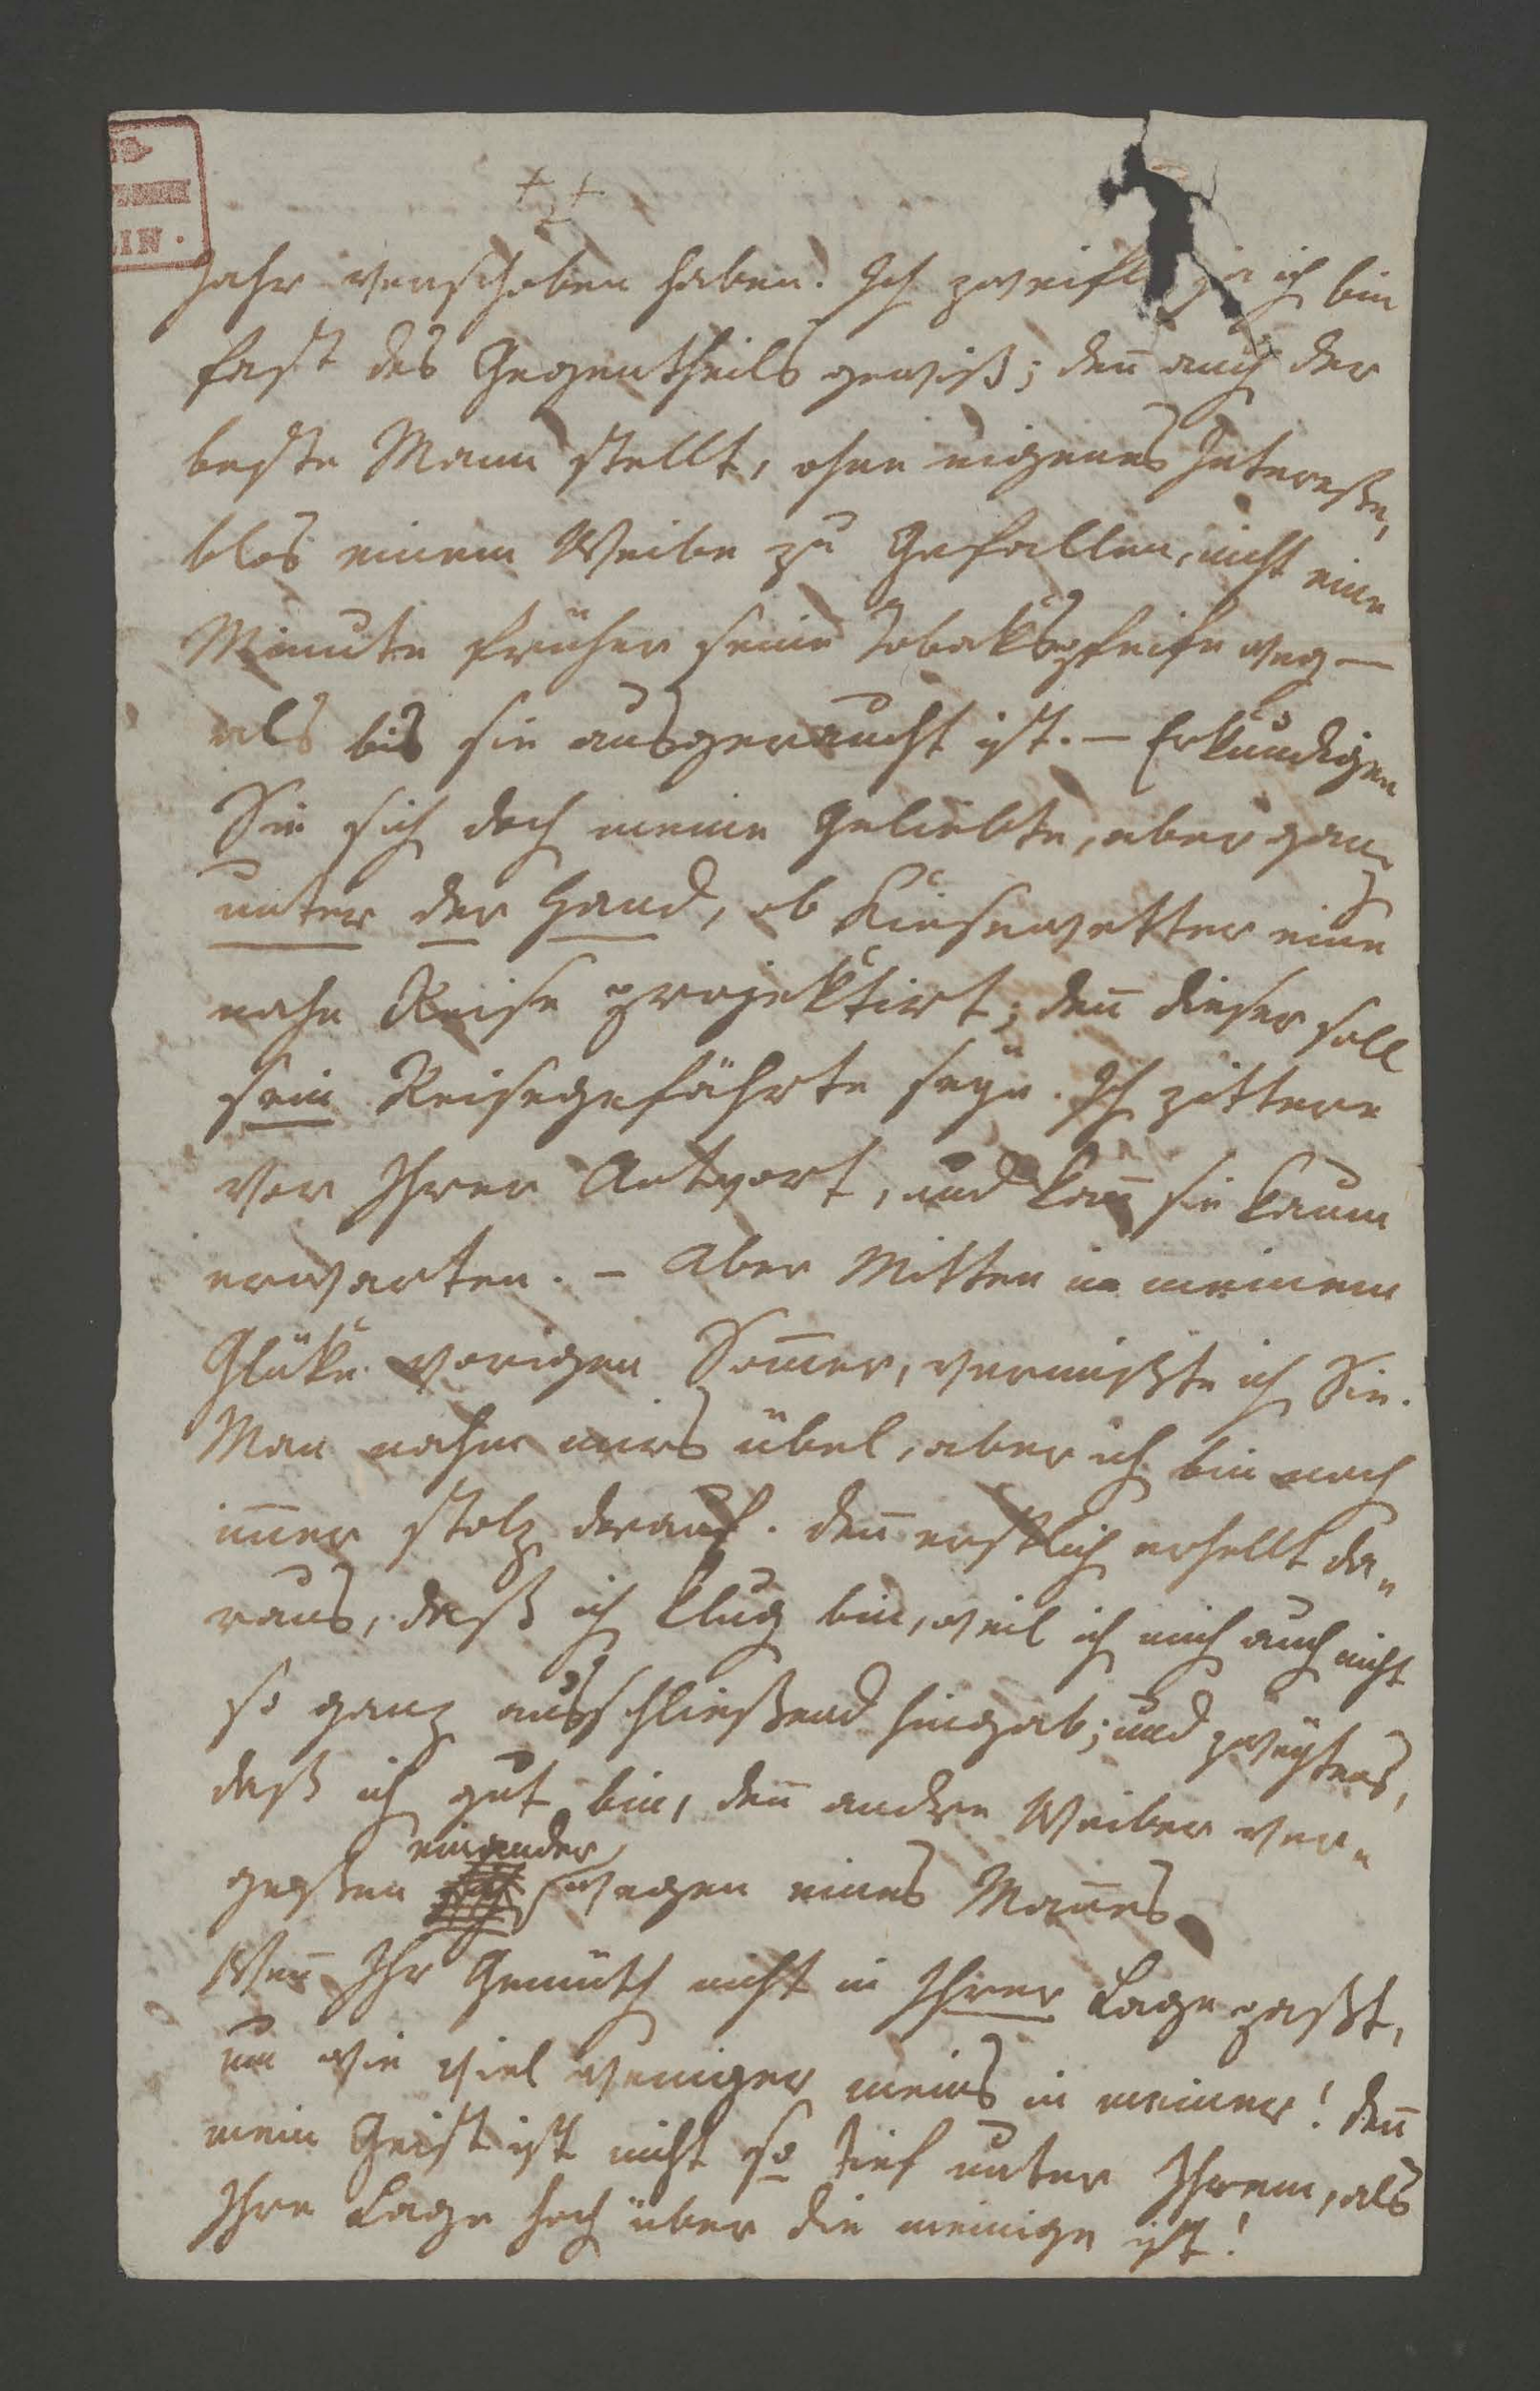 Jahr verschoben haben. Ich zweifle ja ich bin
fast des Gegentheils gewiß; deñ auch der
beste Mann stellt, ohne eigenes Intereße,
blos einem Weibe zu Gefallen, nicht eine
Minute früher seine Tobakspfeife weg —
als bis sie ausgeraucht ist. — Erkundigen
Sie sich doch meine Geliebte, aber ganz
unter der Hand, ob Kiesewetter eine
nahe Reise projektirt; deñ dieser soll
sein Reisegefährte seyn. Ich zittere
vor Ihrer Antwort, und kañ sie kaum
erwarten. — Aber Mitten in meinem
Glüke vorigen Som̃er, vermißte ich Sie.
Man nahm mirs übel, aber ich bin noch
im̃er stolz darauf. Deñ erstlich erhellt da„
raus, daß ich klug bin, weil ich mich auch nicht
so ganz ausschließend hingab; und zweytens,
daß ich gut bin, deñ andre Weiber ver„
geßen einander wegen eines Mañes
Weñ Ihr Gemüth nicht in Ihrer Lage paßt,
um wie viel weniger meins in meiner! Deñ
mein Geist ist nicht so tief unter Ihrem, als
Ihre Lage hoch über die meinige ist!